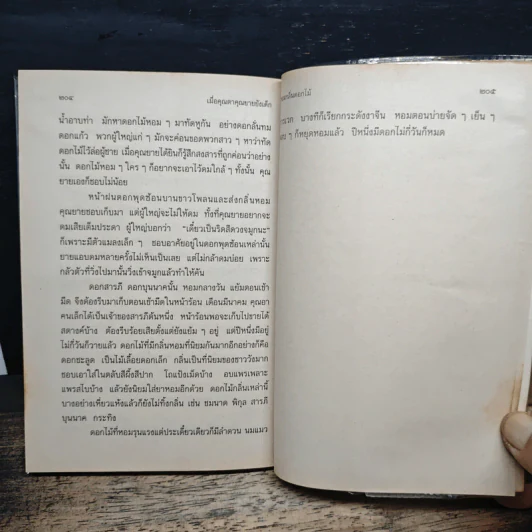 ๒๐๔ เมื่อคุณตาคุณยายยังเด็ก
น้ำอาบท่า มักหาดอกไม้หอม ๆ มาทัดหูกัน อย่างดอกลั่นทม
ดอกแก้ว พวกผู้ใหญ่แก่ ๆ มักจะค่อนขอดพวกสาว ๆ หาว่าทัด
ดอกไม้ไว้ล่อผู้ชาย เมื่อคุณยายได้ยินก็รู้สึกสงสารที่ถูกค่อนว่าอย่าง
นั้น ดอกไม้หอม ๆ ใคร ๆ ก็อยากจะเอาไว้ดมใกล้ ๆ ทั้งนั้น คุณ
ยายเองก็ชอบไม่น้อย
หน้าฝนดอกพุดซ้อนบานขาวโพลนและส่งกลิ่นหอม
คุณยายชอบเก็บมา แต่ผู้ใหญ่จะไม่ให้ดม ทั้งที่คุณยายอยากจะ
ดมเสียเต็มประดา ผู้ใหญ่บอกว่า "เดี๋ยวเป็นริดสีดวงจมูกนะ"
ก็เพราะมีตัวแมลงเล็ก ๆ ชอบอาศัยอยู่ในดอกพุดซ้อนเหล่านั้น
ยายแอบดมหลายครั้งไม่เห็นเป็นเลย แต่ไม่กล้าดมบ่อย เพราะ
กลัวตัวที่วิ่งไปมานั้นวิ่งเข้าจมูกแล้วทำให้คัน
ดอกสารภี ดอกบุนนาคนั้น หอมกลางวัน แย้มตอนเช้า
มืด จึงต้องรีบมาเก็บตอนเช้ามืดในหน้าร้อน เดือนมีนาคม คุณอา
คนเล็กได้เป็นเจ้าของสารภีต้นหนึ่ง หน้าร้อนพอจะเก็บไปขายได้
สตางค์บ้าง ต้องรีบร้อยเสียตั้งแต่ยังแย้ม ๆ อยู่ แต่ปีหนึ่งมีอยู่
ไม่กี่วันก็วายแล้ว ดอกไม้ที่มีกลิ่นหอมที่นิยมกันมากอีกอย่างก็คือ
ดอกชะลูด เป็นไม้เลื้อยดอกเล็ก กลิ่นเป็นที่นิยมของชาววังมาก
ชอบเอาใส่ในตลับสีผึ้งสีปาก โถแป้งเม็ดบ้าง อบแพรเพลาะ
แพรสไบบ้าง แล้วยังนิยมใส่ยาหอมอีกด้วย ดอกไม้กลิ่นเหล่านี้
บางอย่างเหี่ยวแห้งแล้วก็ยังไม่ทิ้งกลิ่น เช่น ชมนาด พิกุล สารภี
บุนนาค กระทิง
ดอกไม้ที่หอมรุนแรงแต่ประเดี๋ยวเดียวก็มีลำดวน นมแมว
๒๐๕
บางทีก็เรียกกระดังงาจีน หอมตอนบ่ายจัด ๆ เย็น ๆ
ๆ ก็หยุดหอมแล้ว ปีหนึ่งมีดอกไม่กี่วันก็หมด